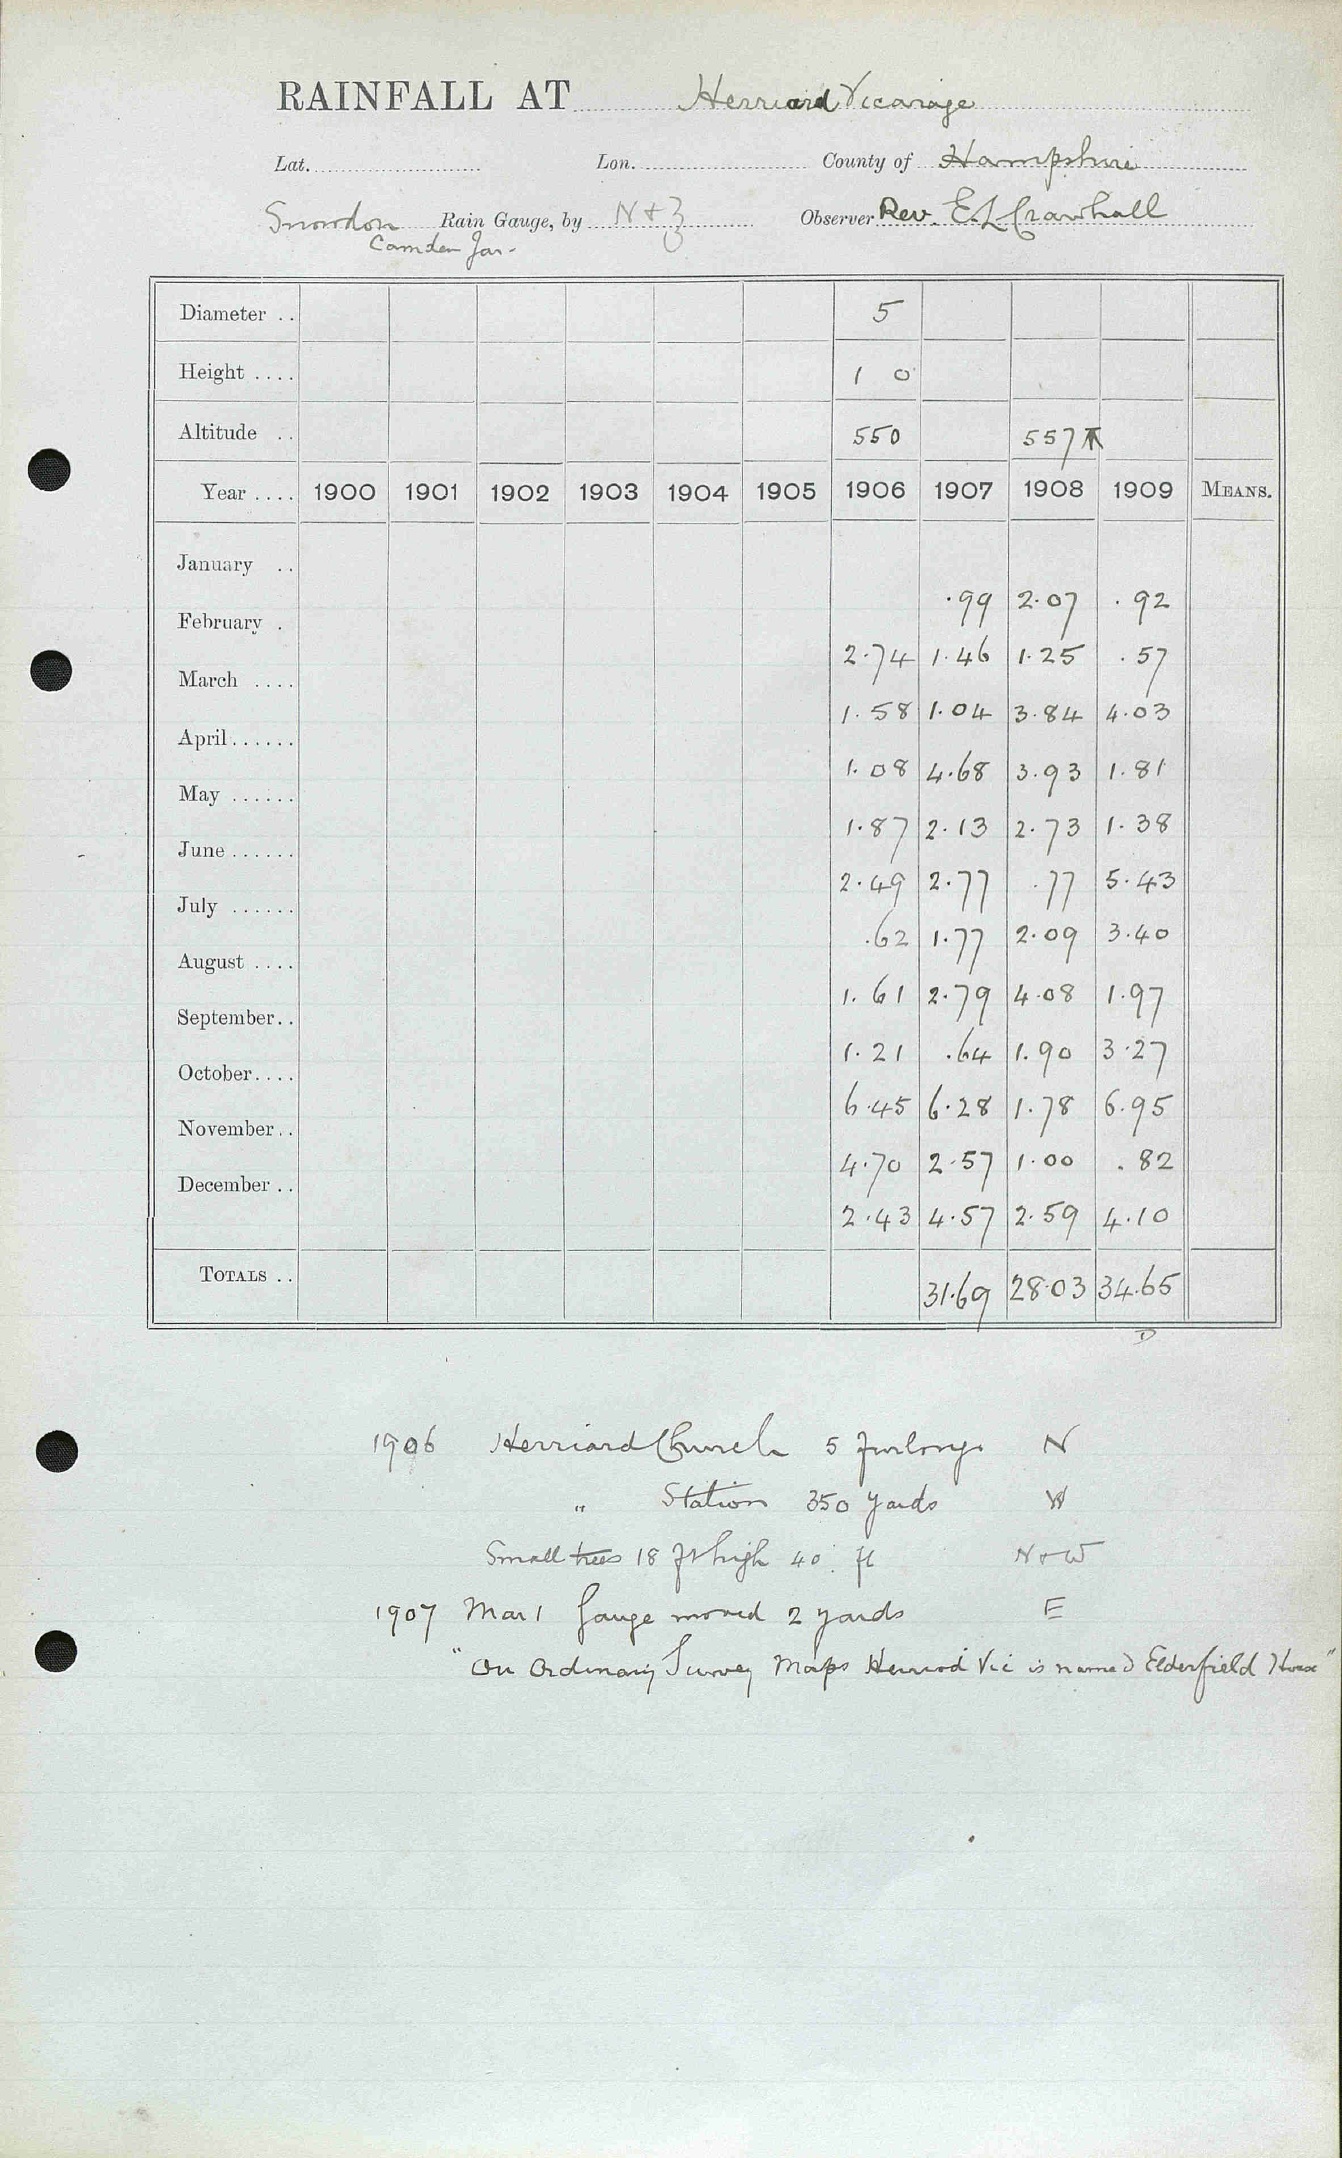 RAINFALL AT Herriard Vicarage
Lat. Lon. County of Hampshire
Snowdon Rain Gauge, by N + Z Observer Rev. E L Crawhall
Camden Jar.
Diameter .. 5
Height .... 1 0
Altitude .. 550 557
Year .... 1900 1901 1902 1903 1904 1905 1906 1907 1908 1909 MEANS.
January .. .99 2.07 .92
February . 2.74 1.46 1.25 .57
March .... 1.58 1.04 3.84 4.03
April...... 1.08 4.68 3.93 1.81
May ...... 1.87 2.13 2.73 1.38
June ...... 2.49 2.77 .77 5.43
July ...... .62 1.77 2.09 3.40
August .... 1.61 2.79 4.08 1.97
September.. 1.21 .64 1.90 3.27
October.... 6.45 6.28 1.78 6.95
November.. 4.70 2.57 1.00 .82
December .. 2.43 4.57 2.59 4.10
TOTALS .. 31.69 28.03 34.65
D
1906 Herriard Church 5 furlongs N
" Station 350 yards W
Small trees 18 ft high 40 ft N + W
1907 Mar 1 Gauge moved 2 yards E
"On Ordinary Survey Maps Herriard Vic is named Elderfield House"